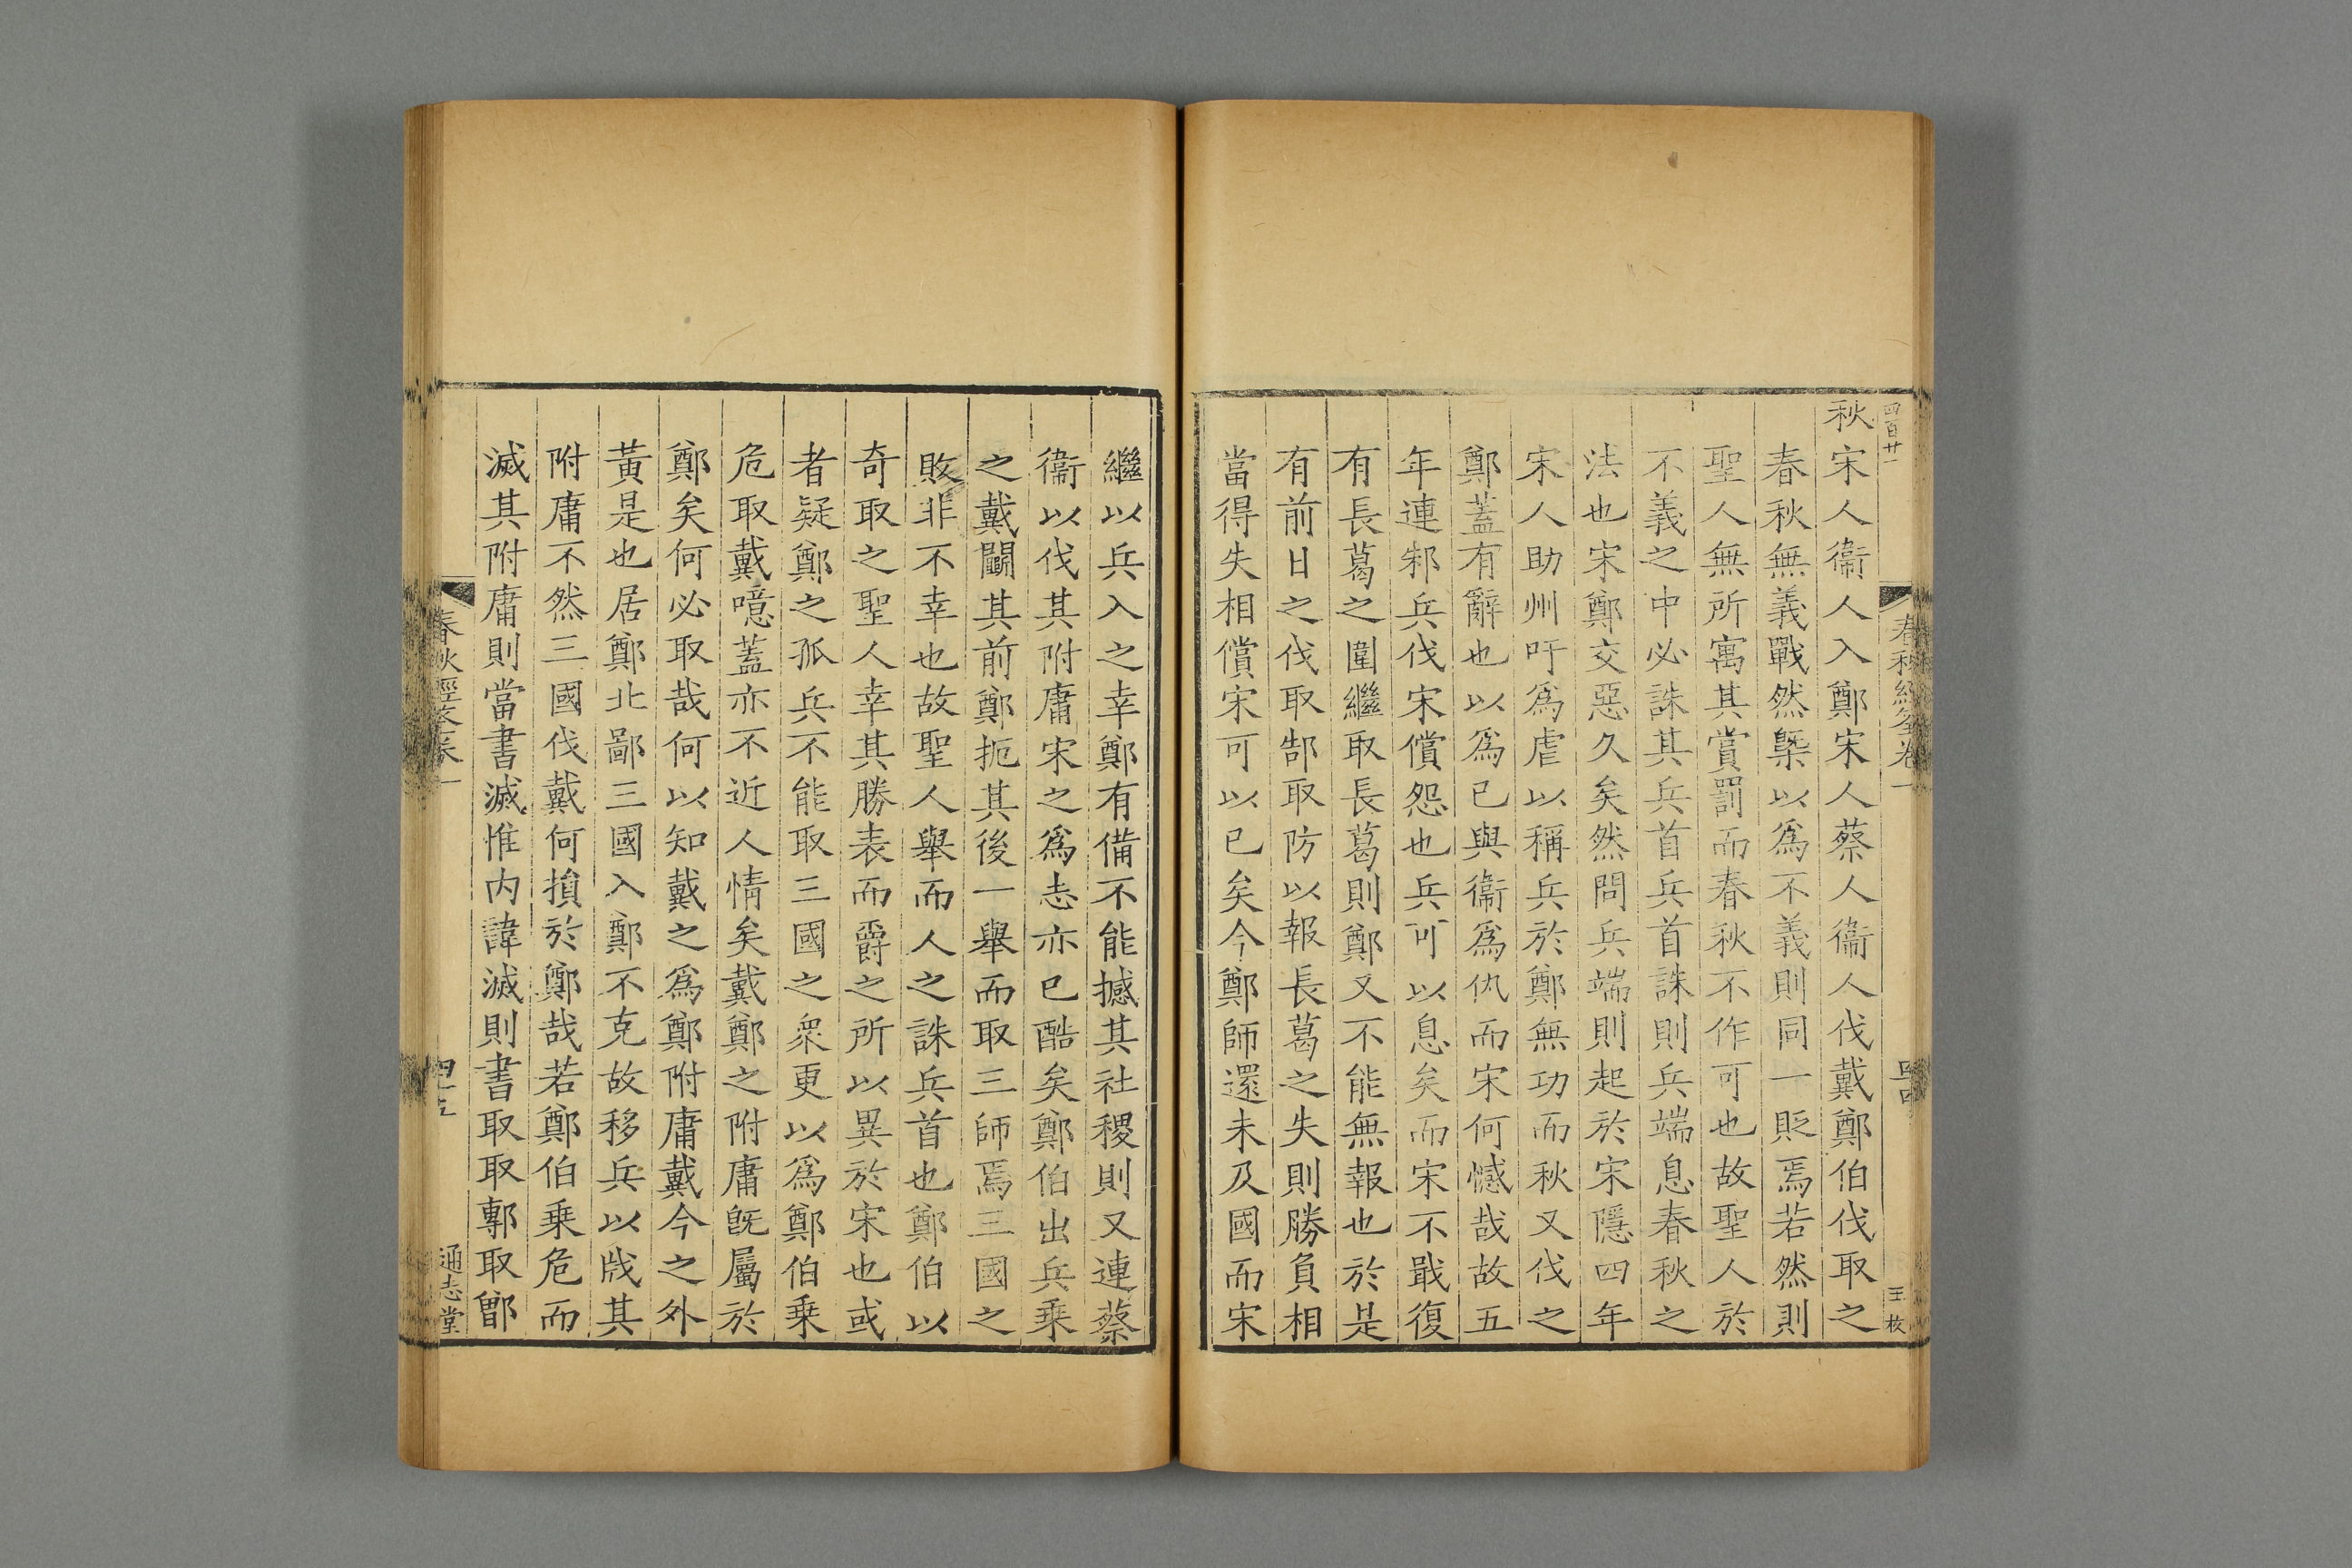 四百廿一
春秋經筌卷一
王枚
秋宋人衞人入鄭宋人蔡人衞人伐戴鄭伯伐取之
春秋無義戰然槩以爲不義則同一貶焉若然則
聖人無所寓其賞罰而春秋不作可也故聖人於
不義之中必誅其兵首兵首誅則兵端息春秋之
法也宋鄭交惡久矣然問兵端則起於宋隱四年
宋人助州吁爲虐以稱兵於鄭無功而秋又伐之
鄭蓋有辭也以爲已與衞爲仇而宋何憾哉故五
年連邾兵伐宋償怨也兵可以息矣而宋不戢復
有長葛之圍繼取長葛則鄭又不能無報也於是
有前日之伐取郜取防以報長葛之失則勝負相
當得失相償宋可以已矣今鄭師還未及國而宋
繼以兵入之幸鄭有備不能撼其社稷則又連蔡
衞以伐其附庸宋之爲志亦已酷矣鄭伯出兵乗
之戴鬭其前鄭扼其後一舉而取三師焉三國之
敗非不幸也故聖人舉而人之誅兵首也鄭伯以
奇取之聖人幸其勝表而爵之所以異於宋也或
者疑鄭之孤兵不能取三國之衆更以爲鄭伯乗
危取戴噫蓋亦不近人情矣戴鄭之附庸旣屬於
鄭矣何必取哉何以知戴之爲鄭附庸戴今之外
黃是也居鄭北鄙三國入鄭不克故移兵以戕其
附庸不然三國伐戴何損於鄭哉若鄭伯乗危而
滅其附庸則當書滅惟内諱滅則書取取鄟取鄫
春秋經筌卷一
四十五
通志堂